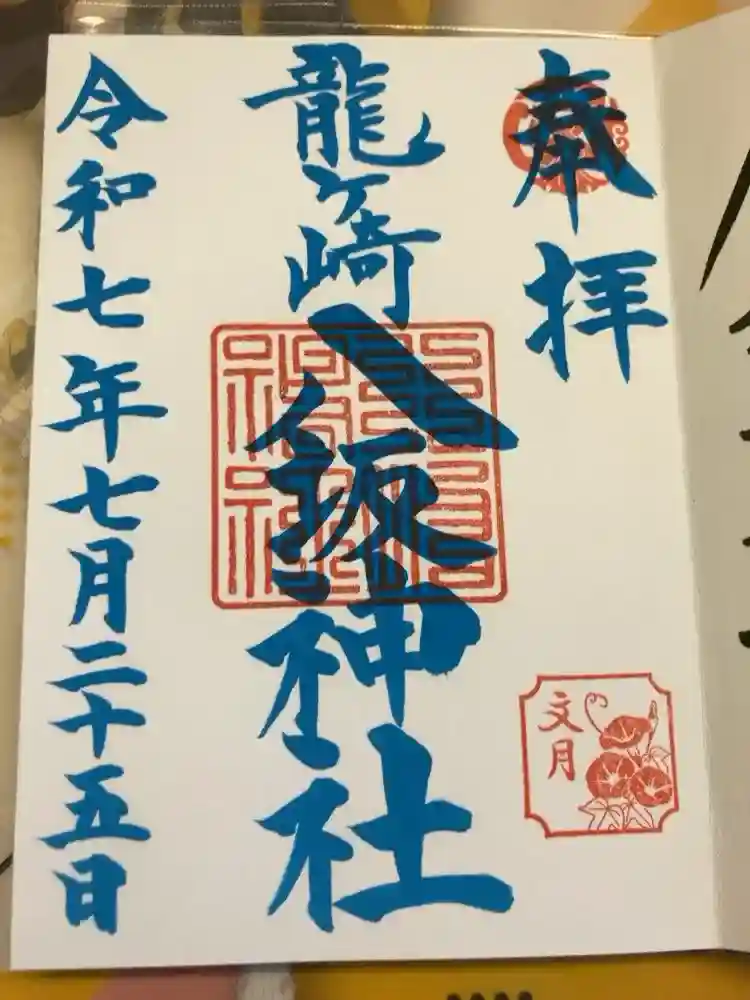 奉拝
龍ヶ崎
八坂神社
文月
令和七年七月二十五日